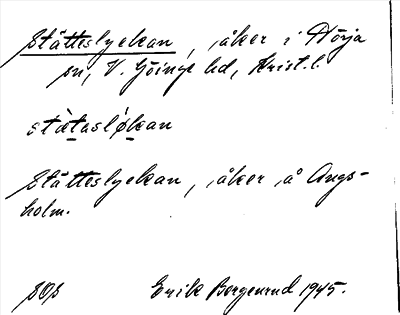 Stätteslyckan, åker i Hörja
sn, V. Göinge hd, Krist. l.
stä̀tasløkan
Stätteslyckan, åker å Ängs-
holm.
SOS Erik Borgenrud 1945.